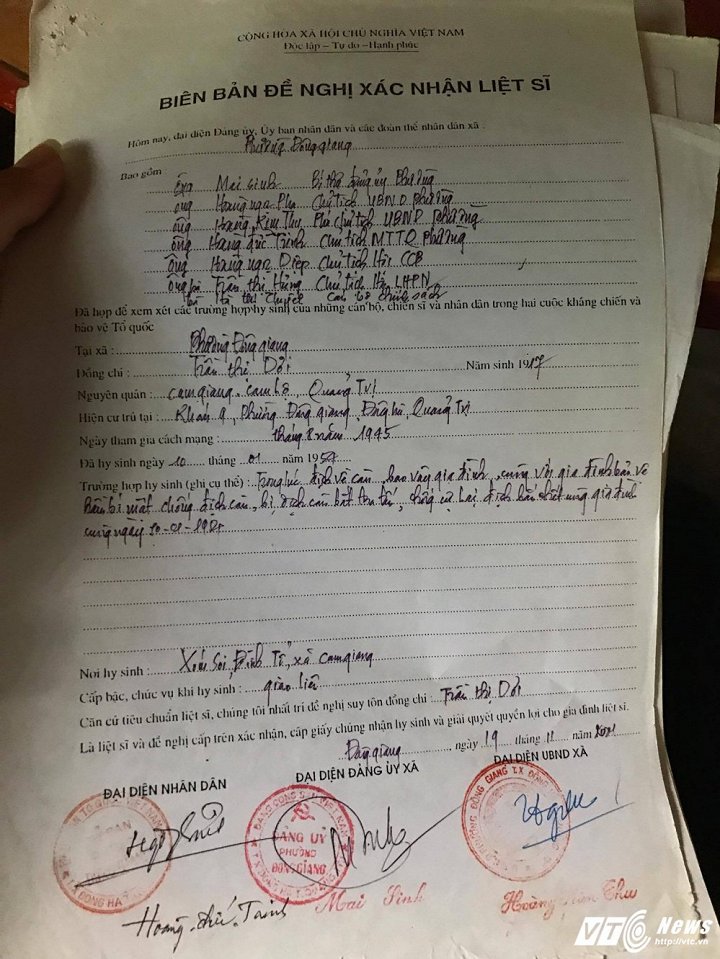 CỘNG HÒA XÃ HỘI CHỦ NGHĨA VIỆT NAM
Độc lập – Tự do – Hạnh phúc
BIÊN BẢN ĐỀ NGHỊ XÁC NHẬN LIỆT SĨ
Hôm nay, đại diện Đảng ủy, Ủy ban nhân dân và các đoàn thể nhân dân xã :
Phường Đông giang
Bao gồm
Ông Mai Sinh Bí thư Đảng ủy Phường
ông Hoàng nga Phu Chủ tịch UBND Phường
ông Hoàng Kim Thu Phó chủ tịch UBND Phường
ông Hoàng đức Trinh Chủ tịch MTTQ Phường
Ông Hoàng ngọc Diệp Chủ tịch Hội CCB
Ông bà Trần thị Hùng Chủ tịch Hội LHPN
bà Hà thị cán bộ chính sách
Đã họp để xem xét các trường hợp hy sinh của những cán bộ, chiến sĩ và nhân dân trong hai cuộc kháng chiến và
bảo vệ Tổ quốc
Tại xã : Phường Đông giang
Đồng chí : Trần thị Dởi Năm sinh 1917
Nguyên quán : cam giang, cam lộ, Quảng Trị
Hiện cư trú tại : Khóm 9, Phường Đông giang, Đông hà, Quảng Trị
Ngày tham gia cách mạng : tháng 8 năm 1945
Đã hy sinh ngày 10 tháng 01 năm 1954
Trường hợp hy sinh (ghi cụ thể) : Trong lúc địch về càn, bao vây gia đình, cùng với gia đình bảo vệ
hầm bí mật chống địch càn, bị địch càn bắt tra tấn, chống cự lại địch bắn chết cùng gia đình
cùng ngày 10-01-1954
Nơi hy sinh : Xóm Soi, Đình Tổ, xã cam giang
Cấp bậc, chức vụ khi hy sinh : giao liên
Căn cứ tiêu chuẩn liệt sĩ, chúng tôi nhất trí đề nghị suy tôn đồng chí : Trần thị Dởi
Là liệt sĩ và đề nghị cấp trên xác nhận, cấp giấy chúng nhận hy sinh và giải quyết quyền lợi cho gia đình liệt sĩ.
Đông giang, ngày 19 tháng 11 năm 2001
ĐẠI DIỆN NHÂN DÂN
ĐẠI DIỆN ĐẢNG ỦY XÃ
ĐẠI DIỆN UBND XÃ
ĐẢNG CỘNG S
ĐẢNG ỦY
PHƯỜNG
ĐÔNG GIANG
ĐÔNG HÀ
PHƯỜNG ĐÔNG GIANG T.X ĐÔNG
Hoàng đức Trinh
Mai Sinh
Hoàng Kim Thu
VTC News
http://vtc.vn